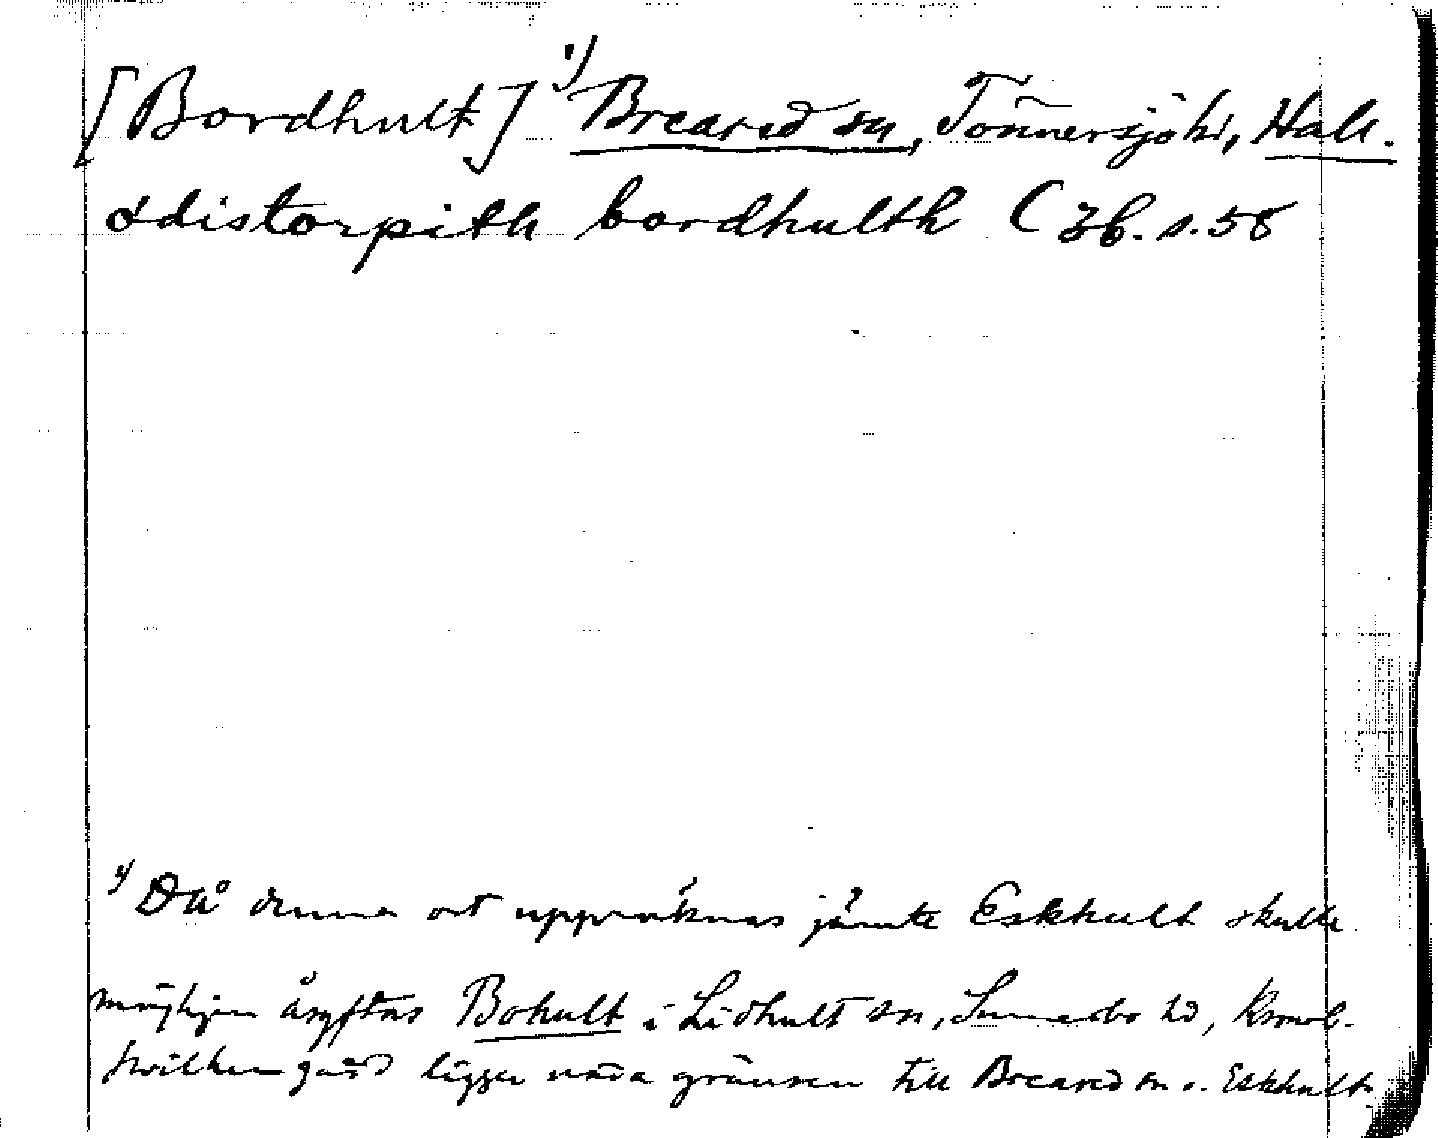 [Bordhult] 1) Breared sn, Tönnersjö hd, Hall.
ødistorpith bordhulth (Zb. s. 58
1) Då denna ort uppräknas jämte Eskhult skulle
möjligen åsyftas Bohult i Lidhult sn, Sunnerbo hd, Kronob.
hvilken gård ligger nära gränsen till Breared sn o. Eskhult.